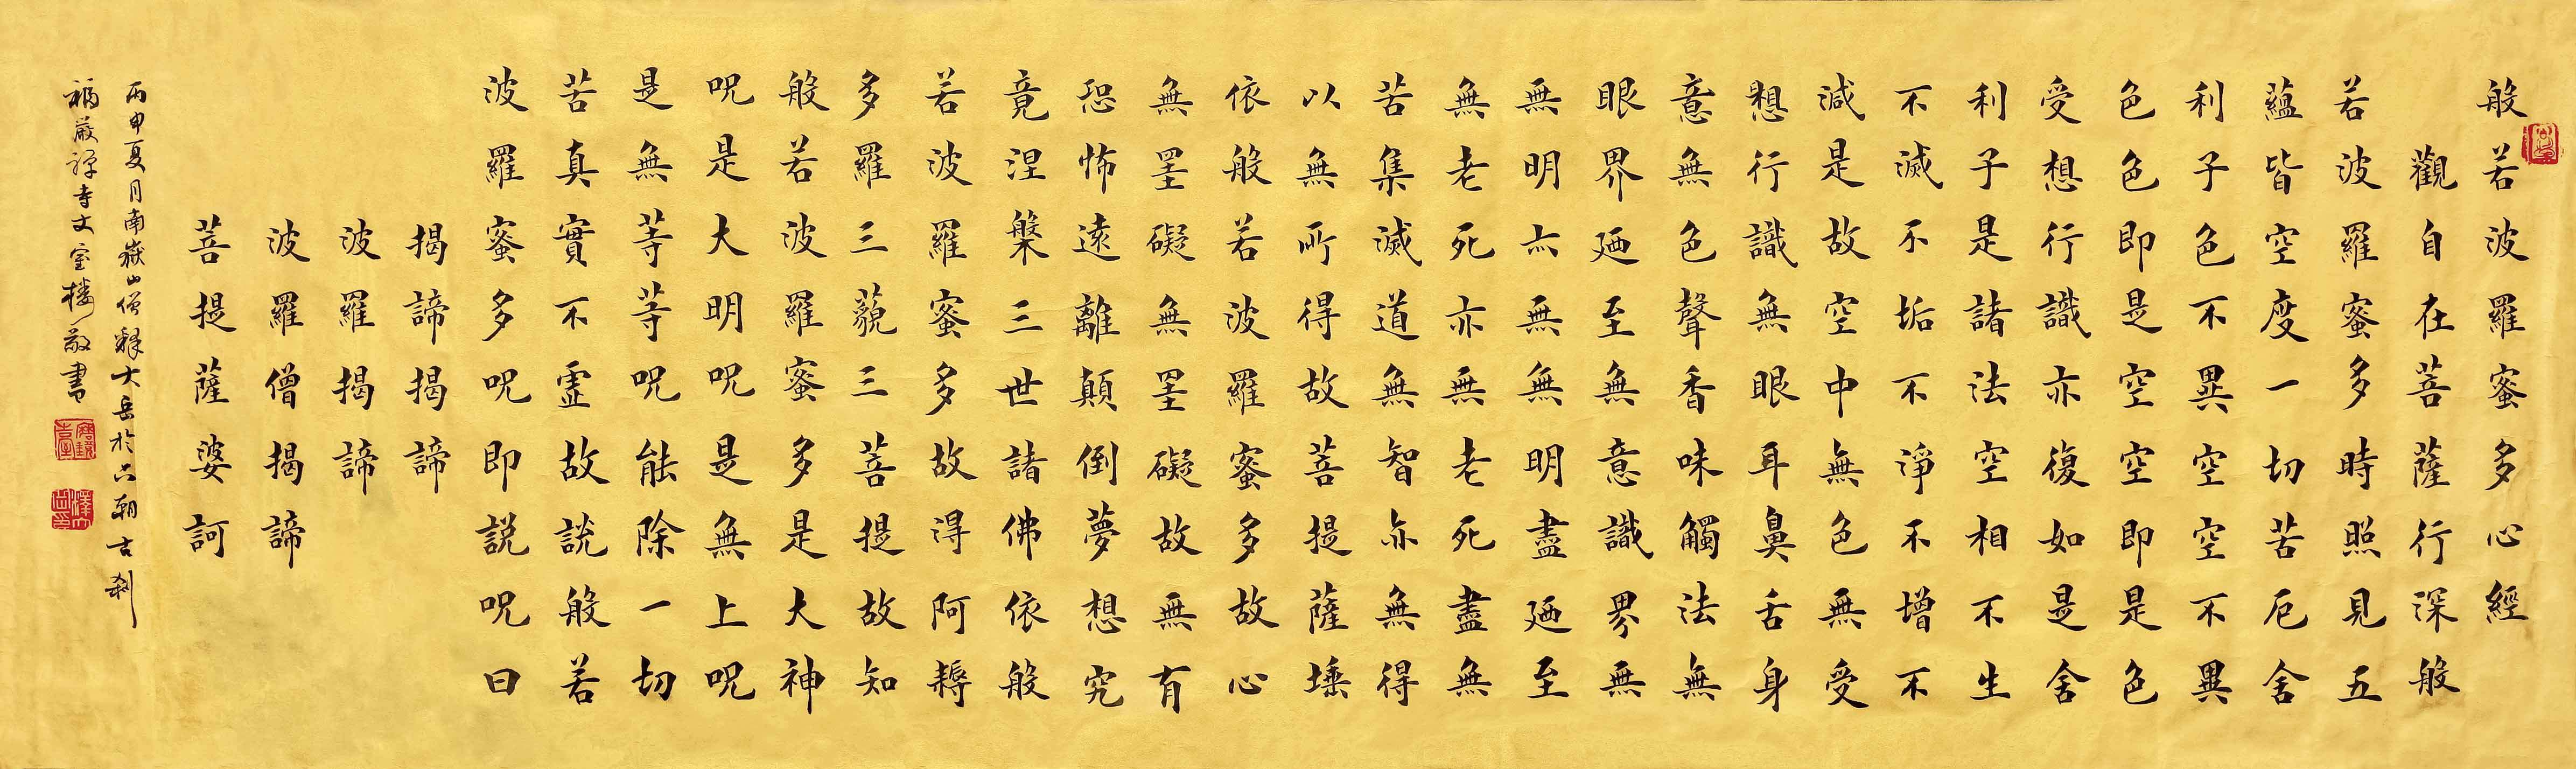 般若波羅蜜多心經
觀自在菩薩行深般
若波羅蜜多時照見五
蘊皆空度一切苦厄舍
利子色不異空空不異
色色即是空空即是色
受想行識亦復如是舍
利子是諸法空相不生
不滅不垢不淨不增不
減是故空中無色無受
想行識無眼耳鼻舌身
意無色聲香味觸法無
眼界廼至無意識界無
無明亦無無明盡廼至
無老死亦無老死盡無
苦集滅道無智亦無得
以無所得故菩提薩埵
依般若波羅蜜多故心
無罣礙無罣礙故無有
恐怖遠離顛倒夢想究
竟涅槃三世諸佛依般
若波羅蜜多故得阿耨
多羅三藐三菩提故知
般若波羅蜜多是大神
呪是大明呪是無上呪
是無等等呪能除一切
苦真實不虛故說般若
波羅蜜多呪即說呪曰
揭諦揭諦
波羅揭諦
波羅僧揭諦
菩提薩婆訶
丙申夏月南嶽山僧釋大岳於六朝古剎
福嚴禪寺丈室樓敬書